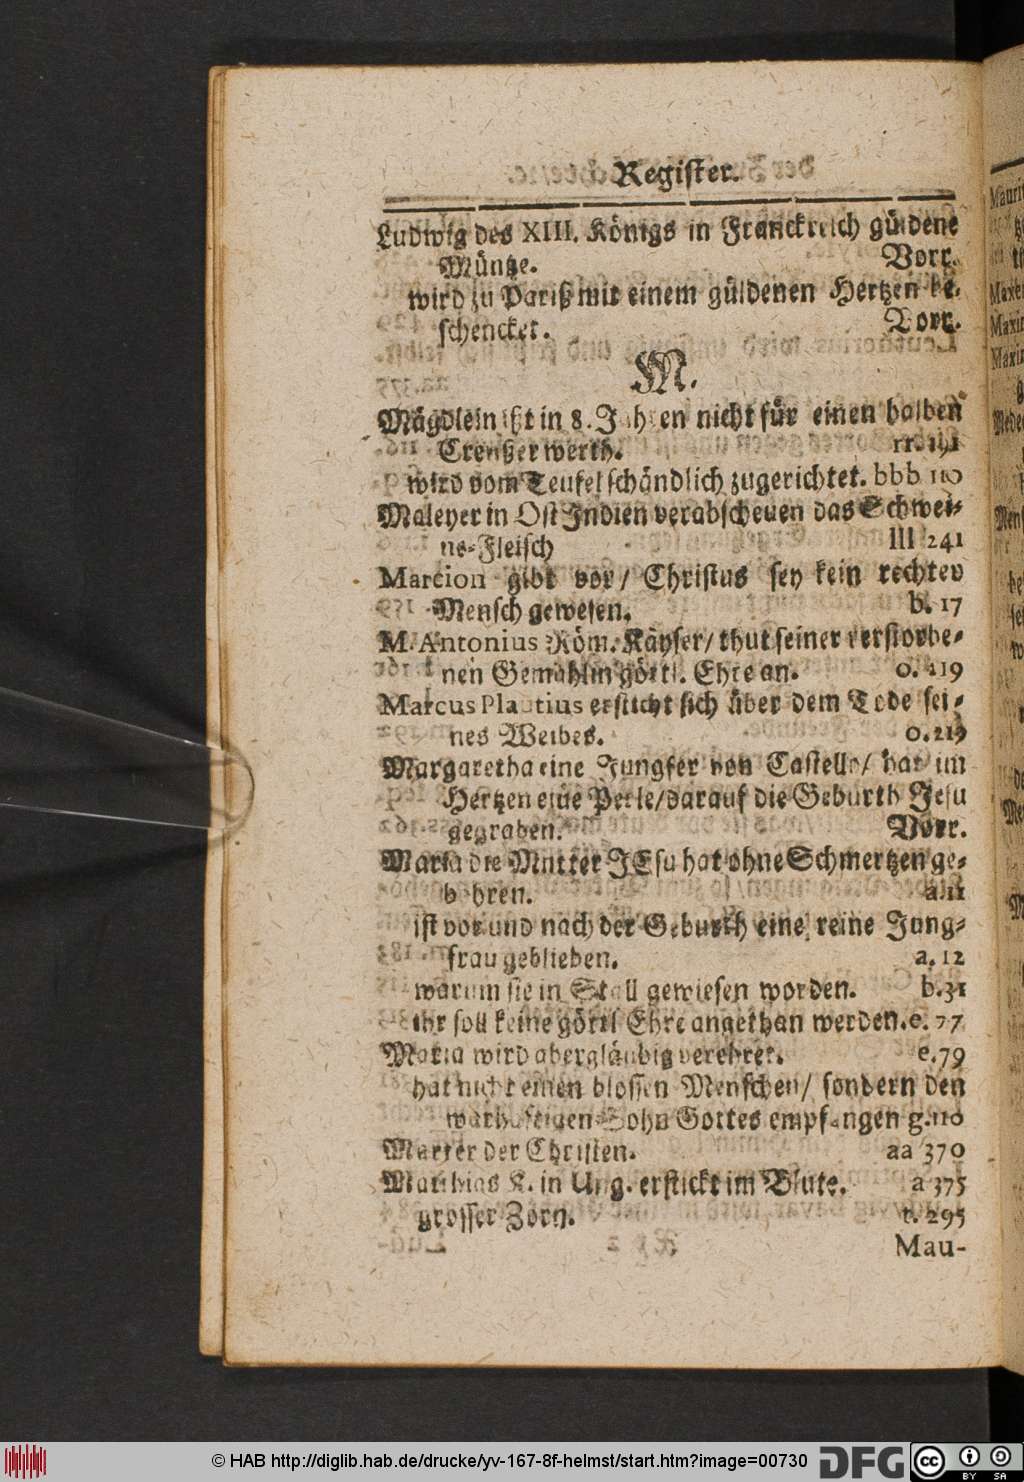 Register.
Ludwig des XIII. Königs in Franckreich güldene
Müntze. Vorr.
wird zu Pariß mit einem güldenen Hertzen be-
schencket. Vorr.
M.
Mägdlein ißt in 8. Jahren nicht für einen halben
Creutzer werth. rr. 191
wird vom Teufel schändlich zugerichtet. bbb 110
Maleyer in Ost Indien verabscheuen das Schwei-
ne-Fleisch lll 241
Marcion gibt vor/ Christus sey kein rechter
Mensch gewesen. b. 17
M. Antonius Röm. Käyser/ thut seiner verstorbe-
nen Gemahlin göttl. Ehre an. o. 219
Marcus Plautius ersticht sich über dem Tode sei-
nes Weibes. o. 219
Margaretha eine Jungfer von Castello/ hat im
Hertzen eine Perle/ darauf die Geburth Jesu
gegraben. Vorr.
Maria die Mutter JEsu hat ohne Schmertzen ge-
bohren. a. 11
ist vor und nach der Geburth eine reine Jung-
frau geblieben. a. 12
warum sie in Stall gewiesen worden. b. 31
ihr soll keine göttl Ehre angethan werden. e. 77
Maria wird abergläubig verehret. e. 79
hat nicht einen blossen Menschen/ sondern den
warhafftigen Sohn Gottes empfangen g. 110
Marter der Christen. aa 370
Matthias K. in Ung. erstickt im Blute. a 375
grosser Zorn. t. 295
Mau-
© HAB http://diglib.hab.de/drucke/yv-167-8f-helmst/start.htm?image=00730
DFG
cc BY SA